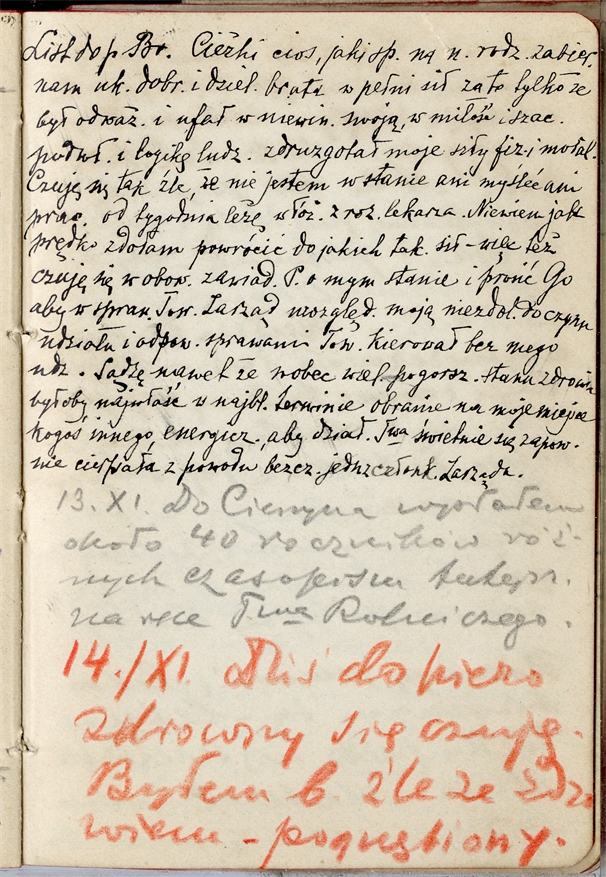 List do p Br. Ciężki cios, jaki sp. na n. rodz. zabier.
nam uk. dobr. i dziel. brata w pełni sił za to tylko że
był odważ. i ufał w niewin. swoją, w miłość i szac.
podwł. i logikę ludz. zdruzgotał moje siły fiz. i moral.
Czuję się tak źle, że nie jestem w stanie ani myśleć ani
prac. od tygodnia leżę w łóż. z roz. lekarza. Niewiem jak
prędko zdołam powrócić do jakich tak. sił – więc też
czuję się w obow. zawiad. P. o mym stanie i prosić Go
aby w spraw. Tow. Zarząd uwzględ. moją niezdol. do czynn
udziału i odpow. sprawami Tow. kierował bez mego
udz. Sądzę nawet że wobec wiel. pogorsz. stanu zdrowia
byłoby najwłaść w najbl. terminie obranie na moje miejsce
kogoś innego, energicz., aby dział. Twa świetnie się zapow.
nie cierpiała z powodu bezcz. jedn członk. Zarządu.
13. XI. Do Cieszyna wysłałem
około 40 roczników róż-
nych czasopism tutejsz.
na ręce Twa Rolniczego.
14./XI. Dziś dopiero
zdrowszy się czuję.
Byłem b. źle ze zdro
wiem – pognębiony.